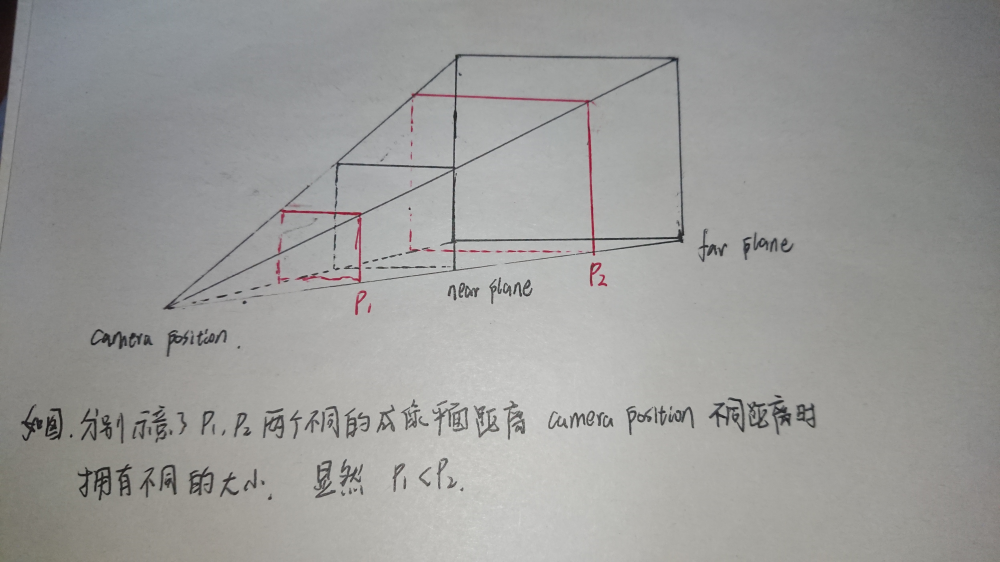 far plane
P₂
near plane
P₁
camera position.
如图.分别示意了 P₁,P₂ 两个不同的成像平面距离 camera position 不同距离时
拥有不同的大小. 显然 P₁<P₂.